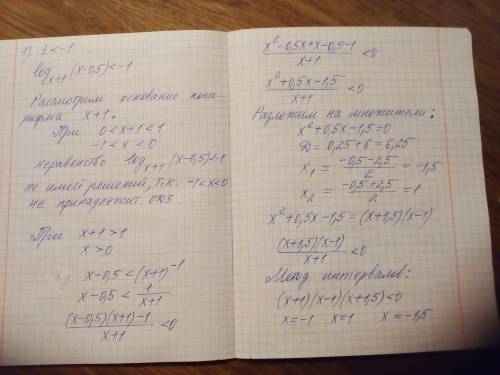 1) t < -1
log_{x+1} (x-0,5) < -1
Рассмотрим основание лога-
рифма x+1.
При 0<x+1<1
-1<x<0
неравенство log_{x+1} (x-0,5)<-1
не имеет решений, т.к. -1<x<0
не принадлежит ОДЗ.
При x+1>1
x>0
x-0,5 < (x+1)^{-1}
x-0,5 < \frac{1}{x+1}
\frac{(x-0,5)(x+1)-1}{x+1} < 0
\frac{x^2-0,5x+x-0,5-1}{x+1} < 0
\frac{x^2+0,5x-1,5}{x+1} < 0
Разложим на множители:
x^2+0,5x-1,5=0
D = 0,25+6 = 6,25
x_1 = \frac{-0,5-2,5}{2} = -1,5
x_2 = \frac{-0,5+2,5}{2} = 1
x^2+0,5x-1,5 = (x+1,5)(x-1)
\frac{(x+1,5)(x-1)}{x+1} < 0
Метод интервалов:
(x+1)(x-1)(x+1,5)<0
x=-1 x=1 x=-1,5